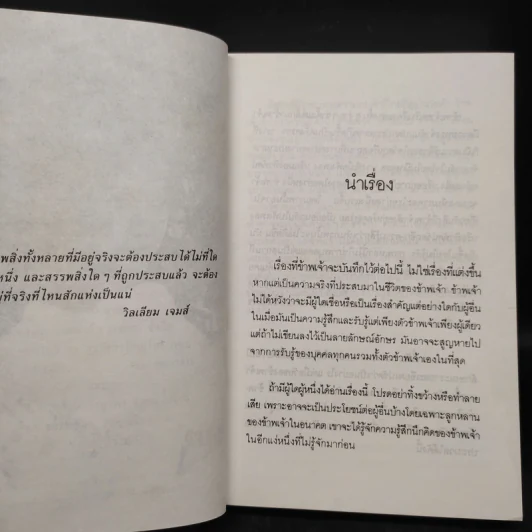 พสิ่งทั้งหลายที่มีอยู่จริงจะต้องประสบได้ไม่ที่ใด
หนึ่ง และสรรพสิ่งใด ๆ ที่ถูกประสบแล้ว จะต้อง
ที่จริงที่ไหนสักแห่งเป็นแน่
วิลเลียม เจมส์
นำเรื่อง
เรื่องที่ข้าพเจ้าจะบันทึกไว้ต่อไปนี้ ไม่ใช่เรื่องที่แต่งขึ้น
หากแต่เป็นความจริงที่ประสบมาในชีวิตของข้าพเจ้า ข้าพเจ้า
ไม่ได้หวังว่าจะมีผู้ใดเชื่อหรือเป็นเรื่องสำคัญแต่อย่างใดกับผู้อื่น
ในเมื่อมันเป็นความรู้สึกและรับรู้แต่เพียงตัวข้าพเจ้าเพียงผู้เดียว
แต่ถ้าไม่เขียนลงไว้เป็นลายลักษณ์อักษร มันอาจจะสูญหายไป
จากการรับรู้ของบุคคลทุกคนรวมทั้งตัวข้าพเจ้าเองในที่สุด
ถ้ามีผู้ใดผู้หนึ่งได้อ่านเรื่องนี้ โปรดอย่าทิ้งขว้างหรือทำลาย
เสีย เพราะอาจจะเป็นประโยชน์ต่อผู้อื่นบ้างโดยเฉพาะลูกหลาน
ของข้าพเจ้าในอนาคต เขาจะได้รู้จักความรู้สึกนึกคิดของข้าพเจ้า
ในอีกแง่หนึ่งที่ไม่รู้จักมาก่อน